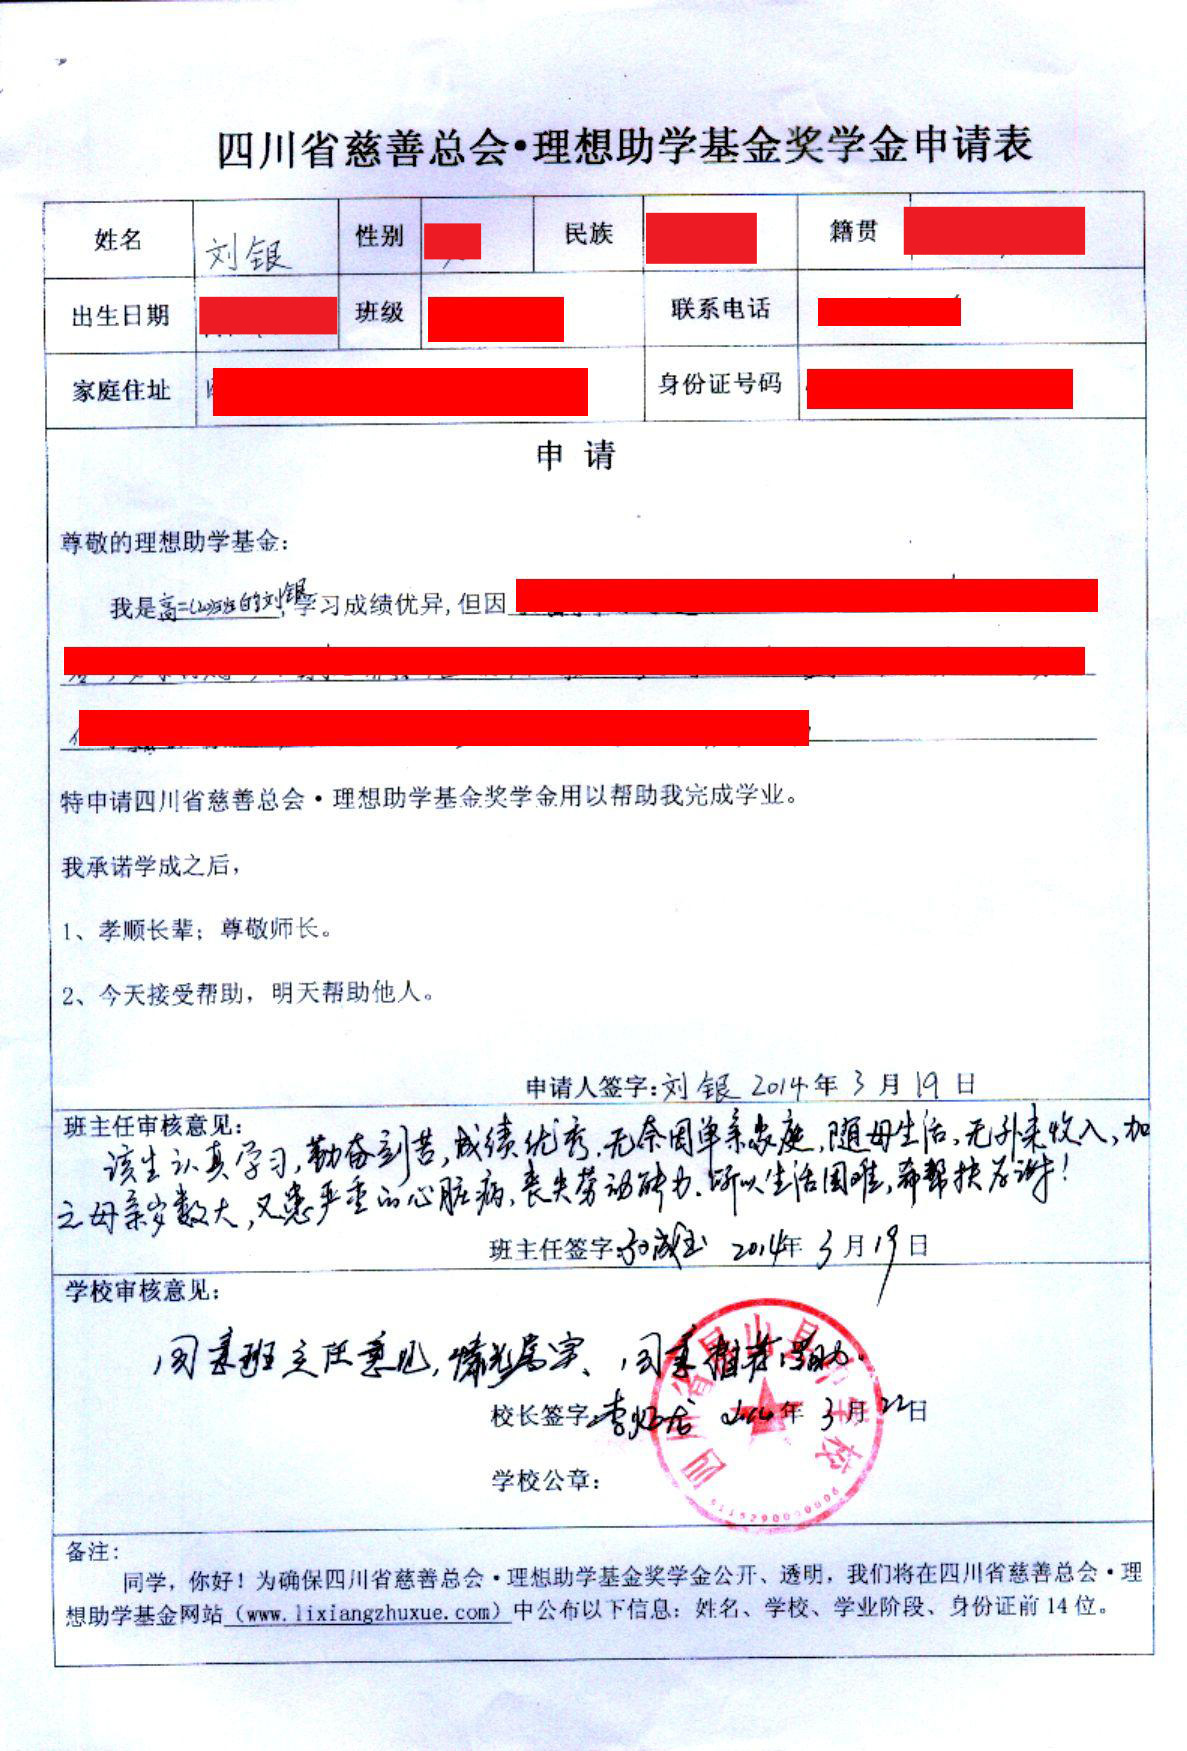 四川省慈善总会·理想助学基金奖学金申请表
姓名 刘银 性别 民族 籍贯
出生日期 班级 联系电话
家庭住址 身份证号码
申 请
尊敬的理想助学基金：
我是高二(20)班的刘银,学习成绩优异,但因
特申请四川省慈善总会·理想助学基金奖学金用以帮助我完成学业。
我承诺学成之后，
1、孝顺长辈；尊敬师长。
2、今天接受帮助，明天帮助他人。
申请人签字:刘银 2014年 3月 19日
班主任审核意见：
该生认真学习,勤奋刻苦,成绩优秀.无奈因单亲家庭,随母生活,无外来收入,加
之母亲岁数大,又患严重的心脏病,丧失劳动能力.所以生活困难,希帮扶为谢!
班主任签字: 2014年 3月 19日
学校审核意见：
同意班主任意见,情况属实、同意推荐资助.
校长签字 2014年 3月 22日
学校公章：
四川省屏山县中学校
备注：
同学，你好！为确保四川省慈善总会·理想助学基金奖学金公开、透明，我们将在四川省慈善总会·理
想助学基金网站（www.lixiangzhuxue.com）中公布以下信息：姓名、学校、学业阶段、身份证前14位。